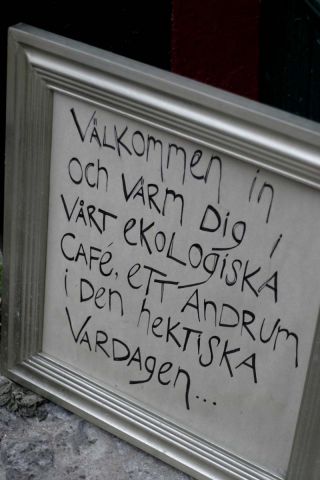 VÄLKOMMEN in
och VÄRM Dig i
VÅRT eKOLOGISKA
CAFÉ, ETT ANDRUM
i Den hekTISKA
VARDAGen...